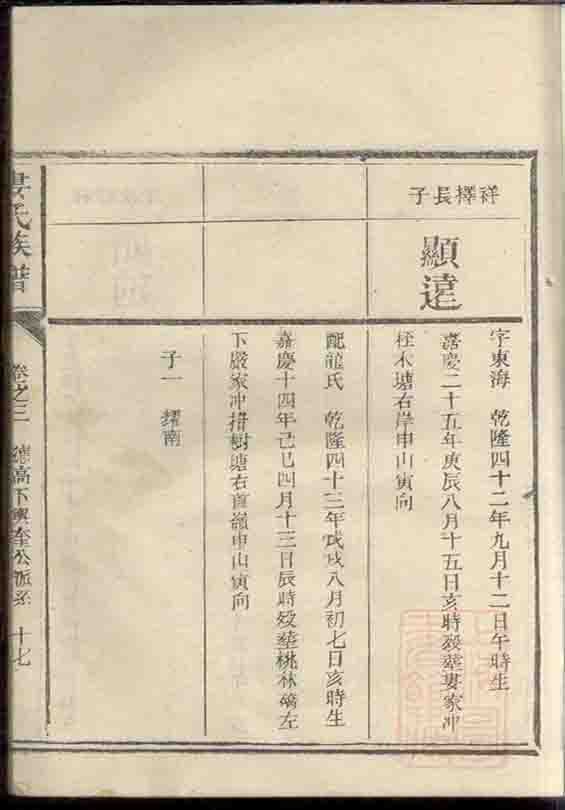 祥擇長子
顯達
字東海 乾隆四十二年九月十二日午時生
嘉慶二十五年庚辰八月十五日亥時殁塟婁家冲
桎木塘右岸申山寅向
配龍氏 乾隆四十三年戊戌八月初七日亥時生
嘉慶十四年己巳四月十三日辰時殁塟桃林礄左
下嚴家冲楷樹塘右首嶺申山寅向
子一 耀南
婁氏族譜
卷之三 德高下興奎公派系 十七